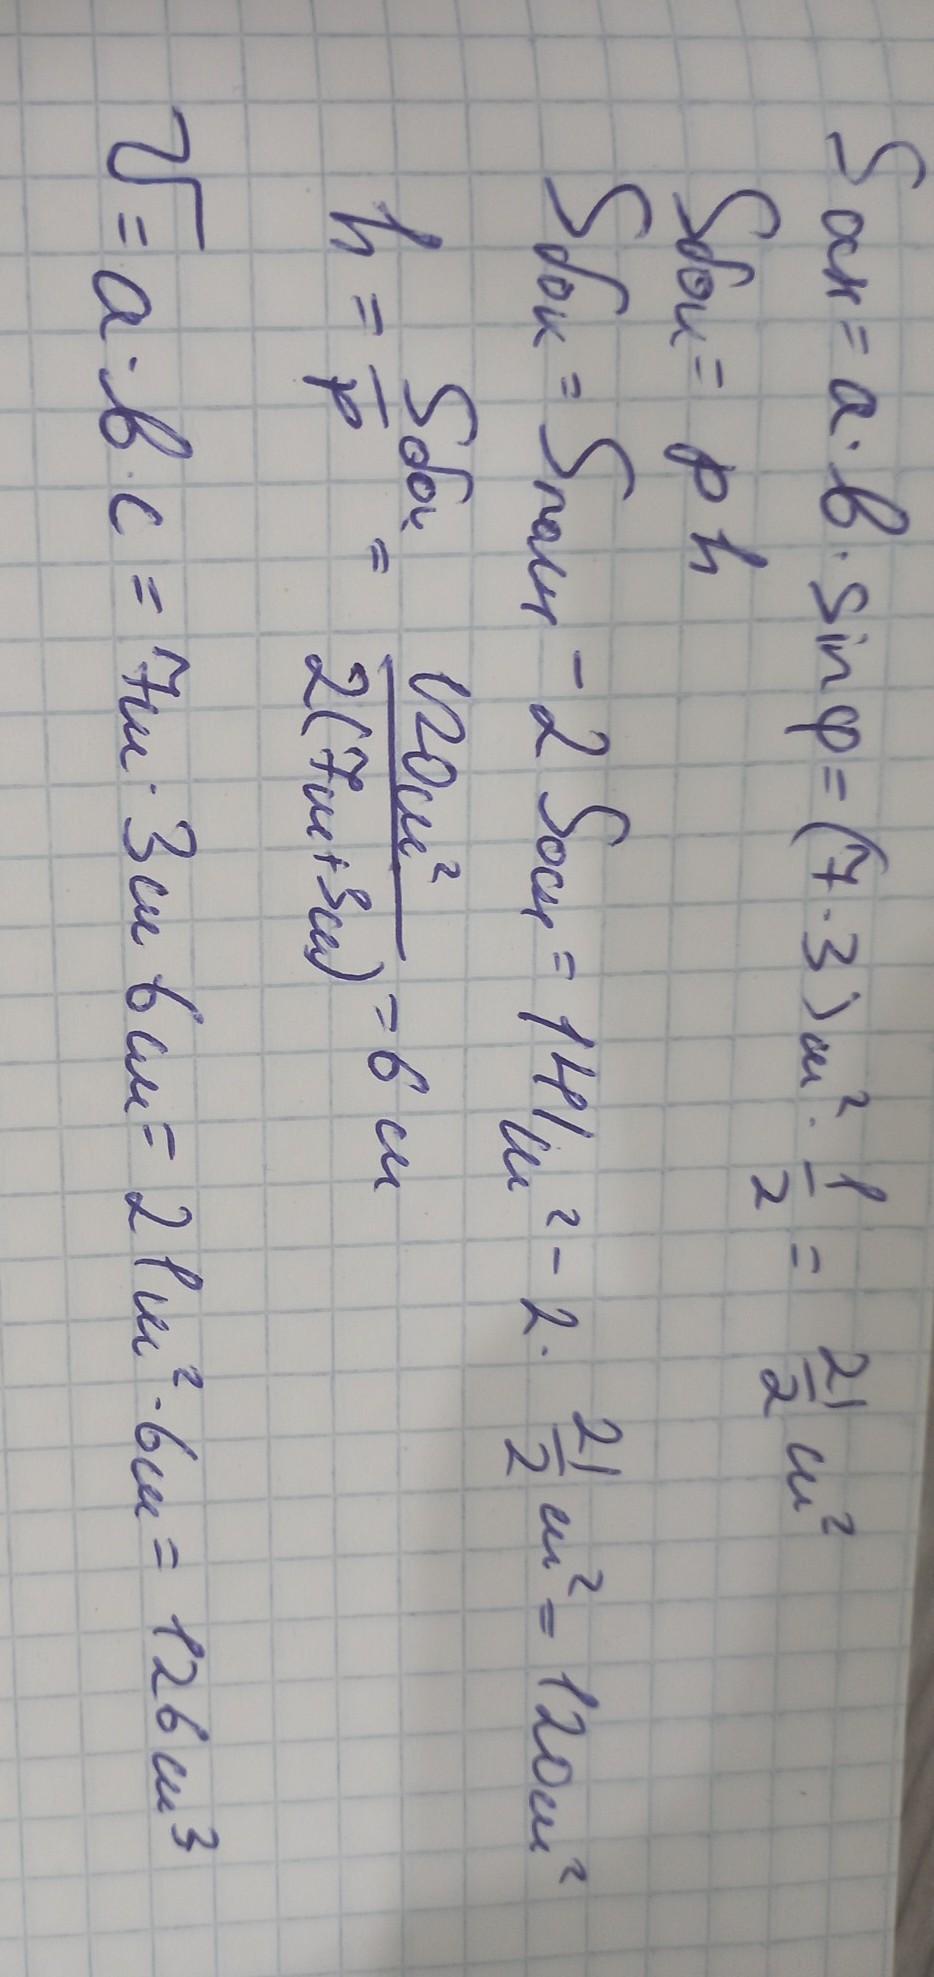 Sосн = a · b · sin φ = (7 · 3) см² · 1/2 = 21/2 см²
Sбок = p h
Sбок = Sполн - 2 Sосн = 141 см² - 2 · 21/2 см² = 120 см²
h = Sбок/p = 120 см²/2(7см + 3см) = 6 см
V = a · b · c = 7см · 3 см 6 см = 21 см² · 6 см = 126 см³